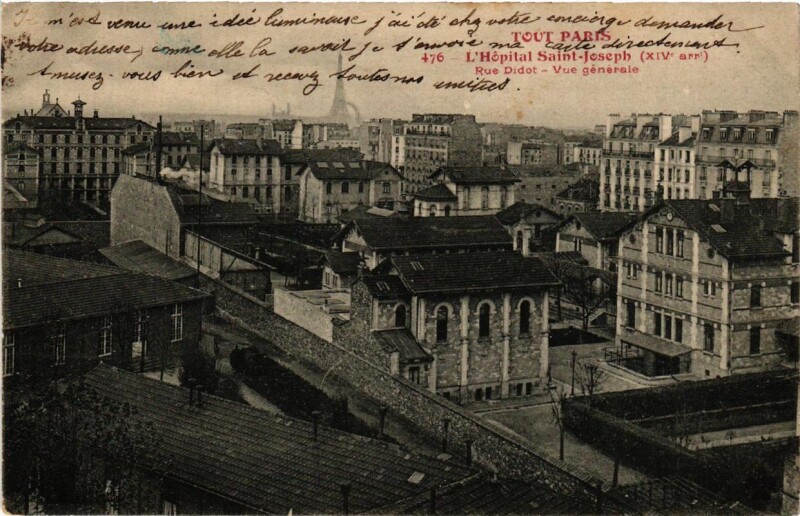 Il m'est venu une idée lumineuse j'ai été chez votre concierge demander
votre adresse, comme elle la savait je t'envoie ma carte directement.
Amusez-vous bien et recevez toutes nos amitiés.
TOUT PARIS
476 — L'Hôpital Saint-Joseph (XIVᵉ arrᵗ)
Rue Didot - Vue générale